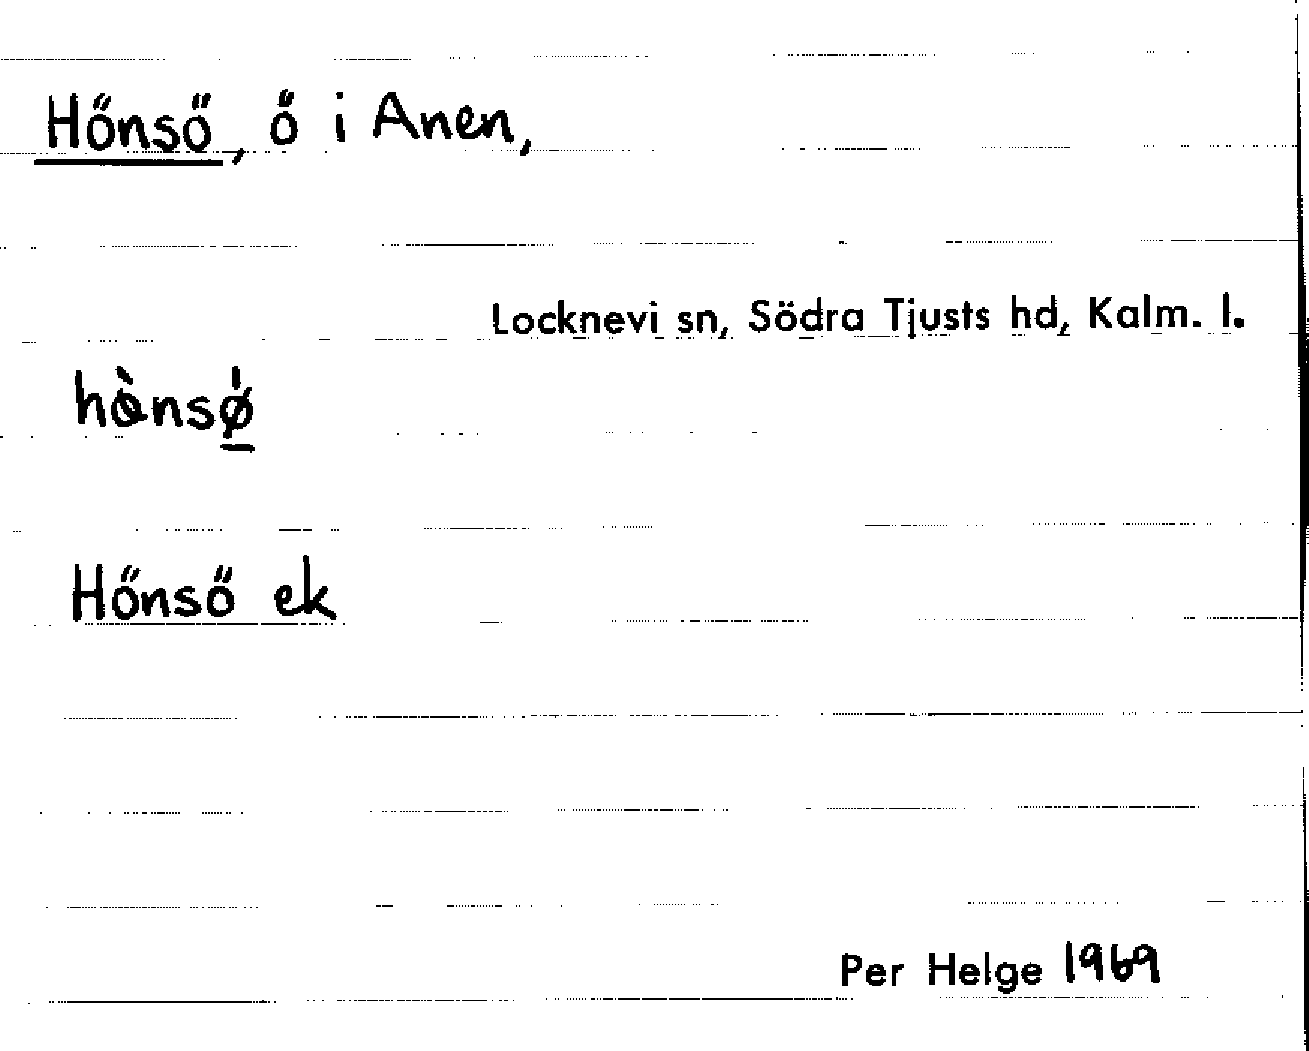 Hönsö, ö i Anen,
Locknevi sn, Södra Tjusts hd, Kalm. l.
Hönsö ek
Per Helge 1969